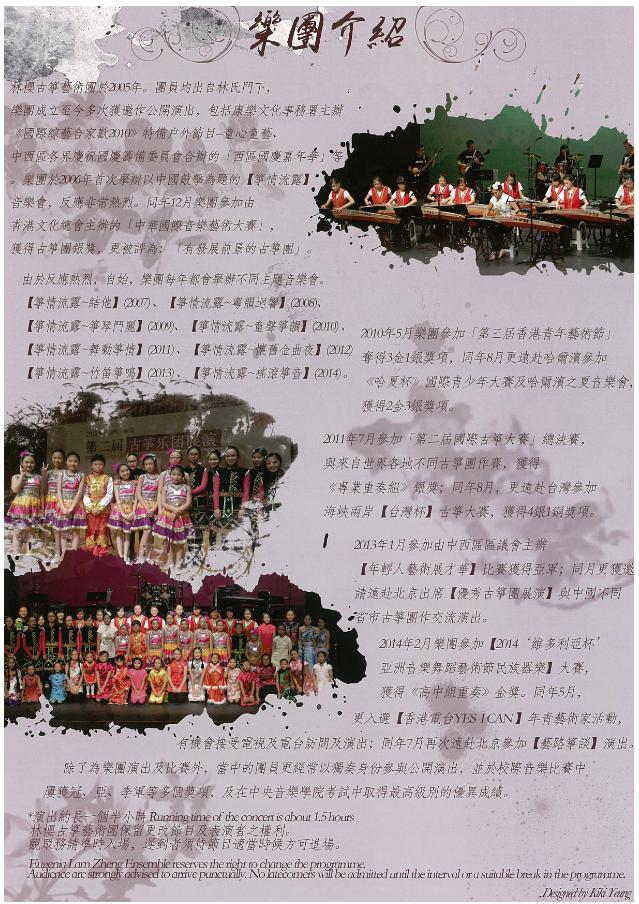 樂團介紹
林櫻古箏藝術團於2005年。團員均出自林氏門下,
樂團成立至今多次獲邀作公開演出, 包括康樂文化事務署主辦
《國際綜藝合家歡2010》特備户外節目-童心童藝、
中西區各界慶祝國慶籌備委員會合辦的「西區國慶嘉年華」等
。樂團於2006年首次舉辦以中國敲擊為題的【箏情流露】
音樂會, 反應非常熱烈。同年12月樂團參加由
香港文化總會主辦的「中華國際音樂藝術大賽」,
獲得古箏團銀獎, 更被評為: 「有發展前景的古箏團」。
由於反應熱烈, 自始, 樂團每年都會舉辦不同主題音樂會。
【箏情流露~結他】(2007)、【箏情流露~粵韻迴響】(2008)、
【箏情流露~箏琴鬥麗】(2009)、【箏情流露~童聲箏韻】(2010)、
【箏情流露~舞動箏情】(2011)、【箏情流露~懷舊金曲夜】(2012)
【箏情流露~竹笛箏鳴】(2013)、【箏情流露~搖滾箏音】(2014)。
2010年5月樂團參加「第三屆香港青年藝術節」
奪得3金1銀獎項, 同年8月更遠赴哈爾濱參加
《哈夏杯》國際青少年大賽及哈爾濱之夏音樂會,
獲得2金3銀獎項。
第二届 古筝乐团展演
2011年7月參加「第二屆國際古箏大賽」總決賽,
與來自世界各地不同古箏團作賽, 獲得
《專業重奏組》銀獎; 同年8月, 更遠赴台灣參加
海峽兩岸【台灣杯】古箏大賽, 獲得4銀1銅獎項。
2013年1月參加由中西區區議會主辦
【年輕人藝術展才華】比賽獲得亞軍; 同月更獲邀
請遠赴北京出席【優秀古箏團展演】與中國不同
省市古箏團作交流演出。
2014年2月樂團參加【2014‘維多利亞杯’
亞洲音樂舞蹈藝術節民族器樂】大賽,
獲得《高中組重奏》金獎。同年5月,
更入選【香港電台YES I CAN】年青藝術家活動,
有機會接受電視及電台訪問及演出; 同年7月再次遠赴北京參加【藝路箏談】演出。
除了為樂團演出及比賽外, 當中的團員更經常以獨奏身份參與公開演出, 並於校際音樂比賽中
屢獲冠、亞、季軍等多個獎項, 及在中央音樂學院考試中取得最高級別的優異成績。
*演出約長一個半小時 Running time of the concert is about 1.5 hours
林櫻古箏藝術團保留更改節目及表演者之權利。
觀眾務請準時入場, 遲到者須待節目適當時候方可進場。
Eugenia Lam Zheng Ensemble reserves the right to change the programme.
Audience are strongly advised to arrive punctually. No latecomers will be admitted until the interval or a suitable break in the programme.
..Designed by Kiki Yeung